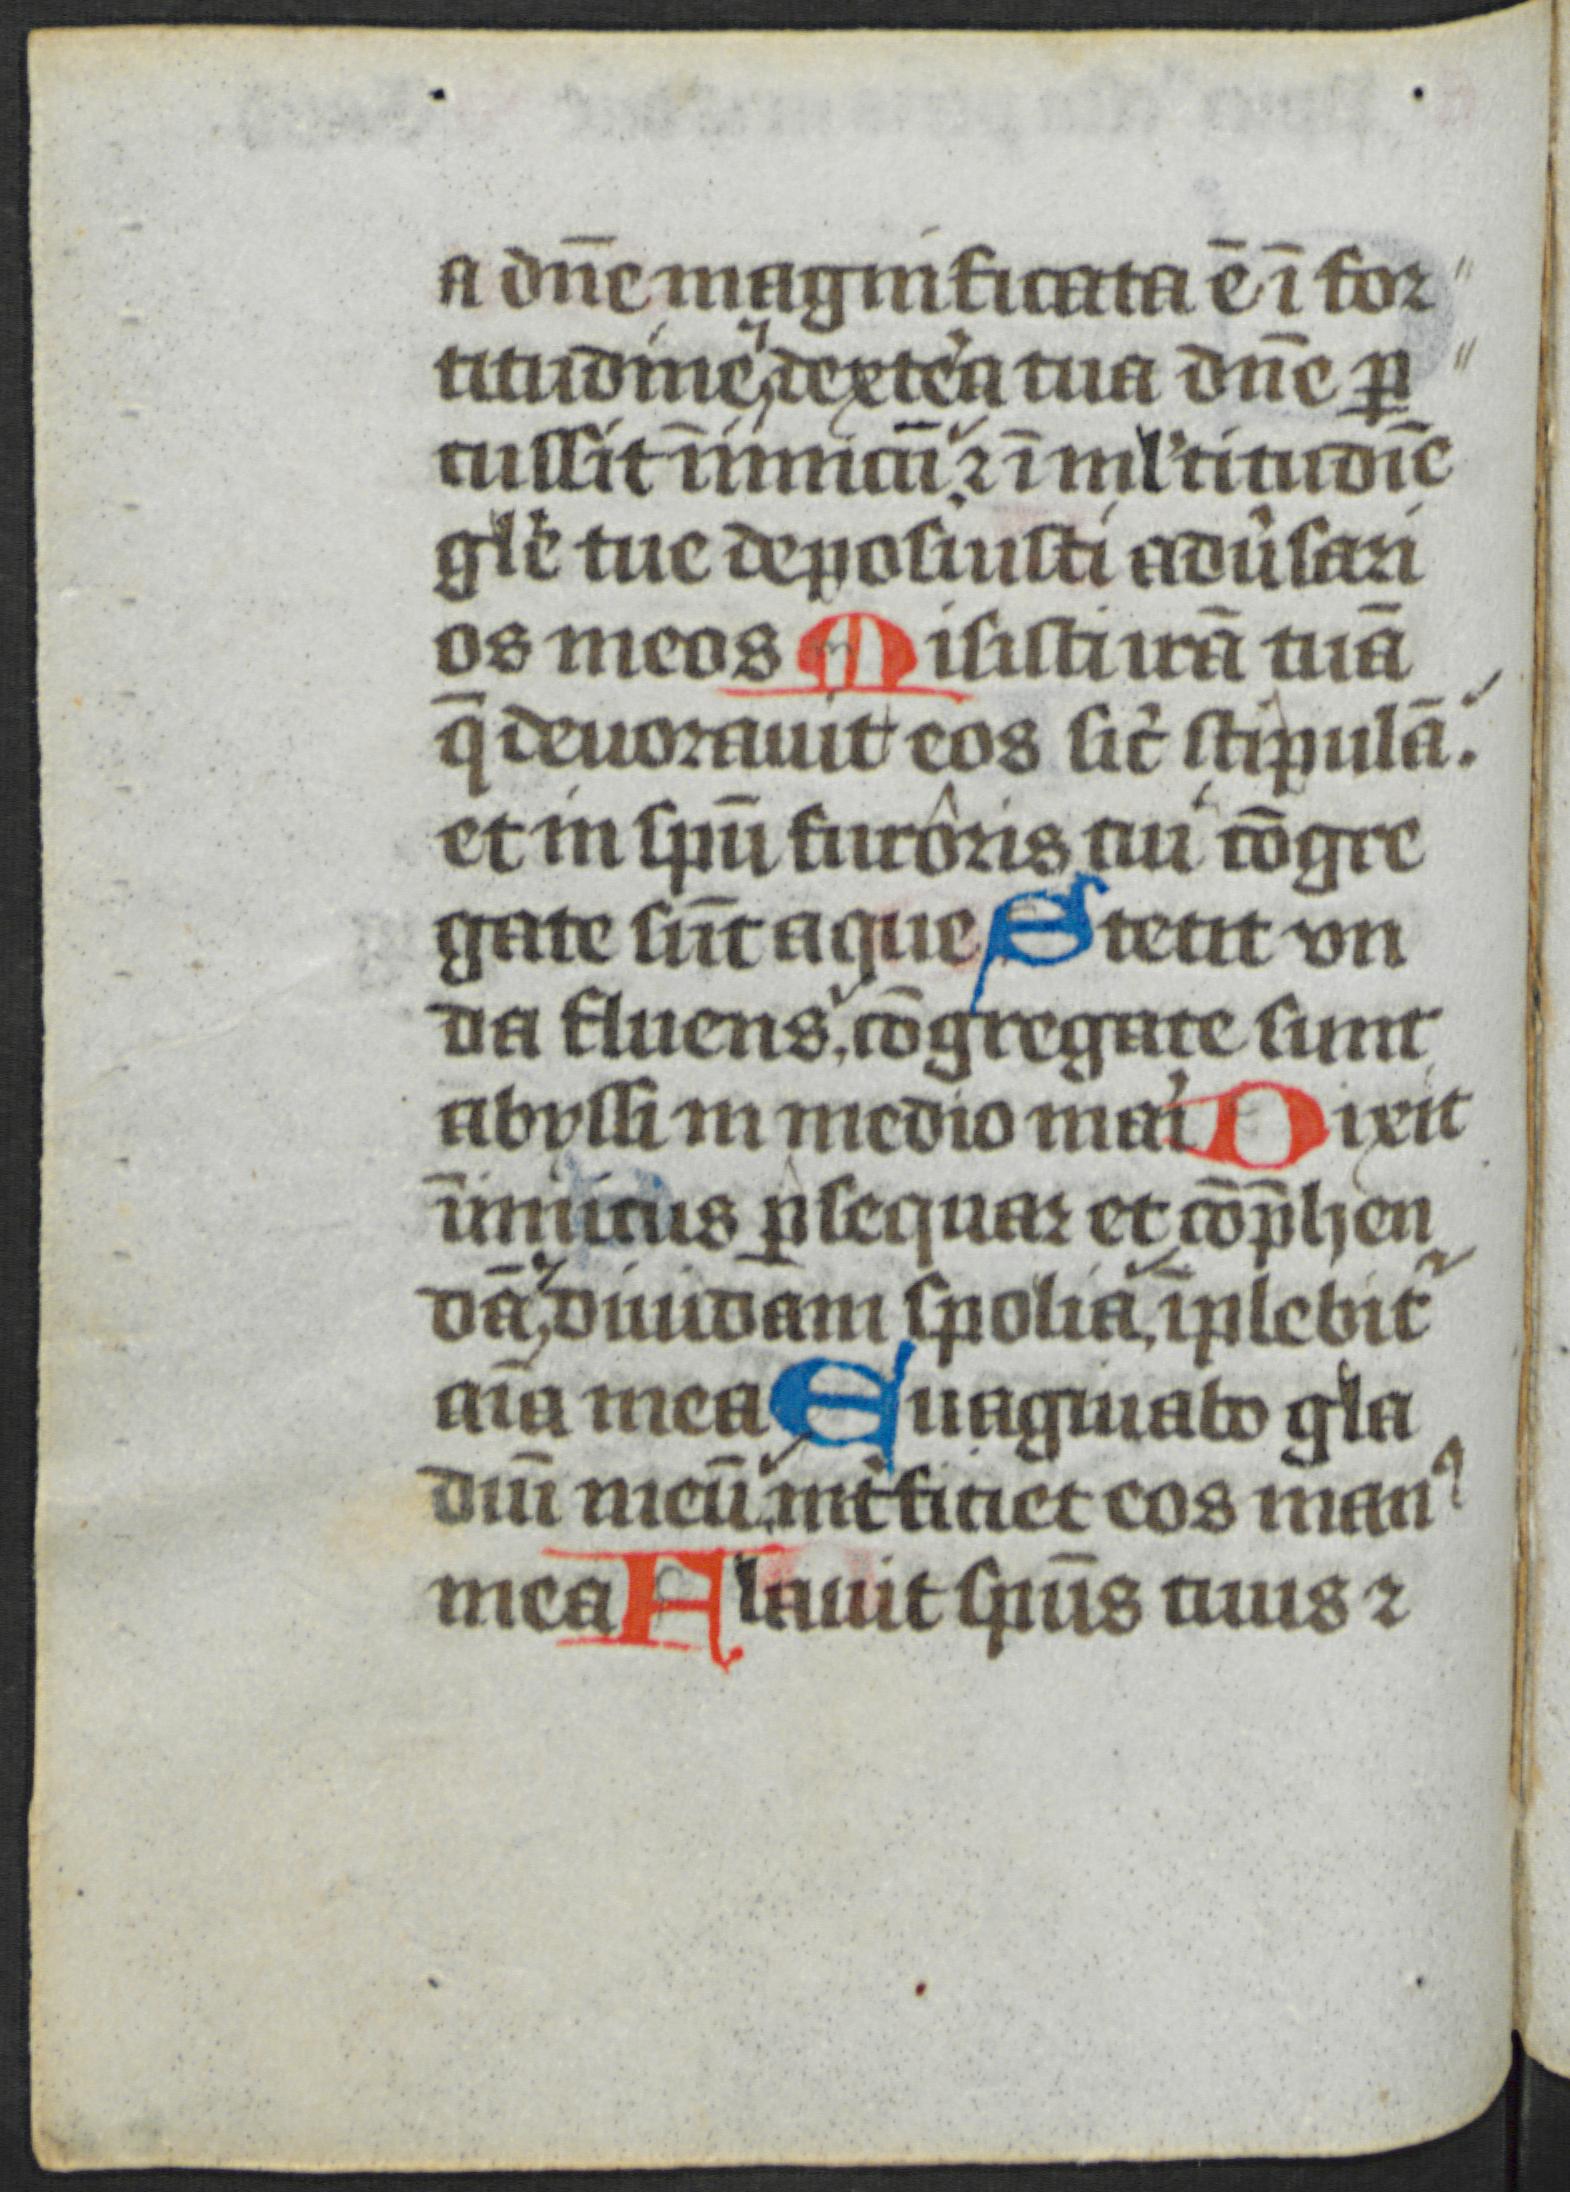 a dn̄e magnificata ē ī for〃
titudinē, dext̉ea tua dn̄e ꝑ〃
cussit īimicū ⁊ ī ml̉titudīe
gl̉e tue deposuisti adũsari
os meos Misisti irā tuā
q̄ deuorauit eos sic̉ stipulā.
et in spū furoris tui cōgre
gate sūt aque Stetit vn
da fluens, cōgregate sunt
abyssi in medio mari Dixit
īimicus ꝑsequar et cōp̄hen
dā, diuidam spolia, īplebit̉
aīa mea Euaginabo gla
diū meū, int̉ficiet eos man᾽
mea Flauit spūs tuus ⁊